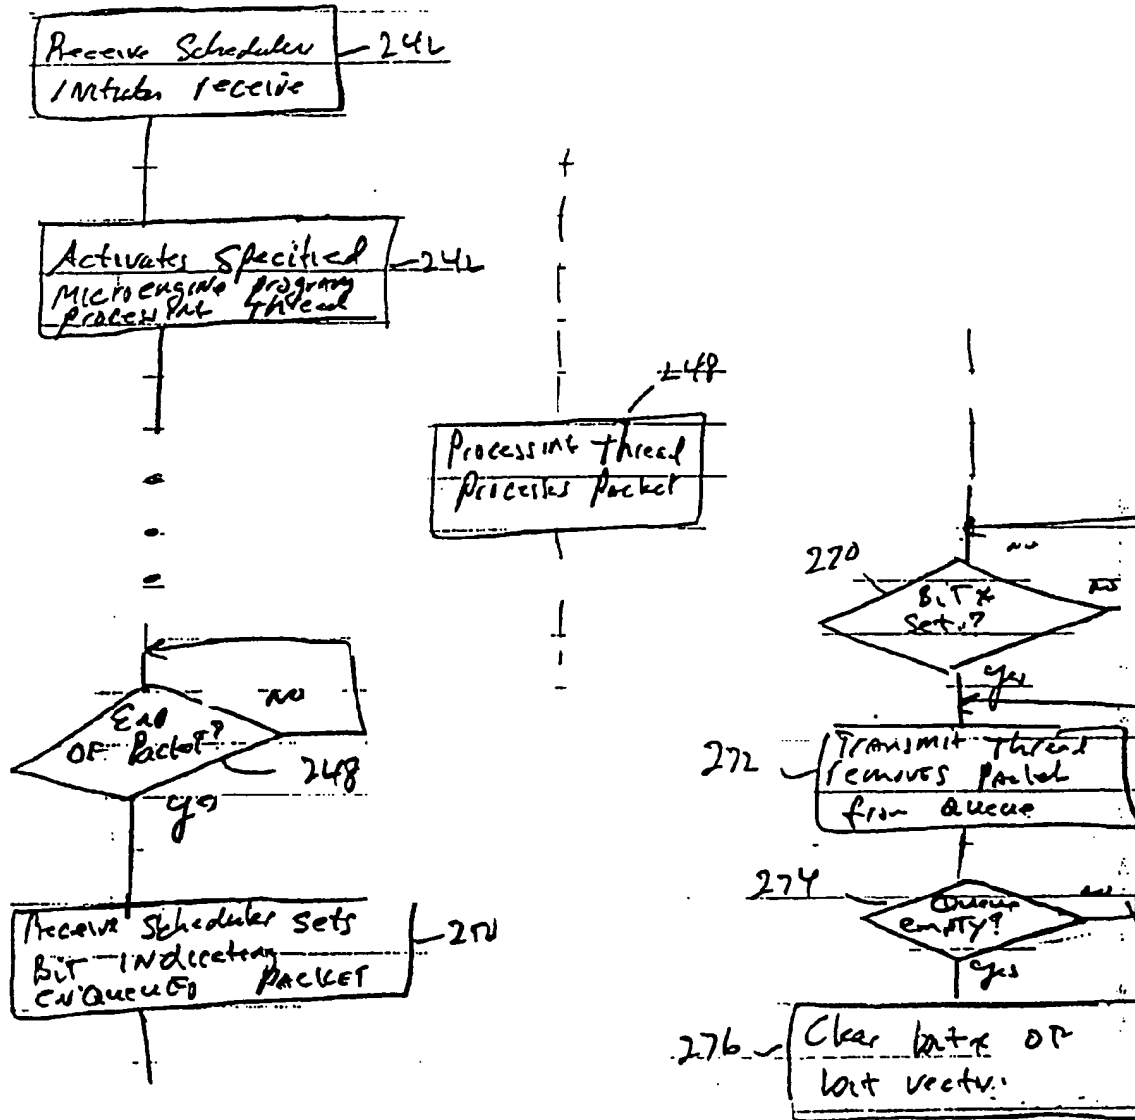 Receive Scheduler
Initiates receive
242
Activates Specified
Microengine program
processing thread
242
248
Processing thread
Processes Packet
End
OF Packet?
NO
248
yes
Receive Scheduler sets
BiT indicating
enqueued PACKET
250
270
BiT x
Set?
NO
NO
yes
272
Transmit thread
removes Packet
from Queue
274
Queue
empty?
NO
yes
276
Clear bit x OF
bit vector